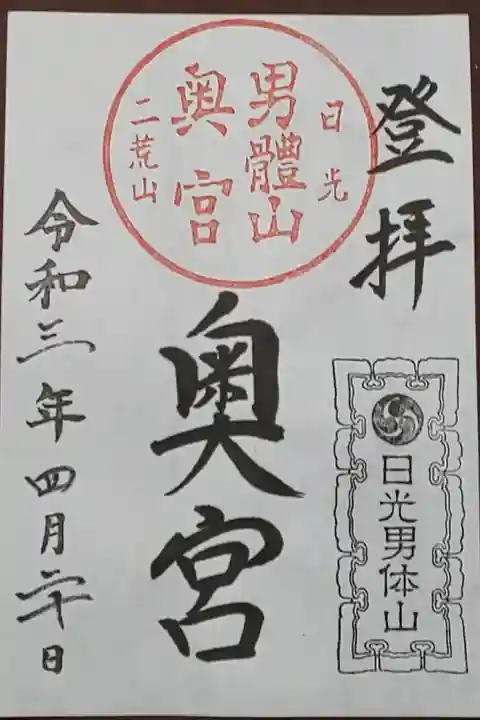 登拝
日光男体山
日光
男體山
奥宮
二荒山
奥宮
令和三年四月二十日